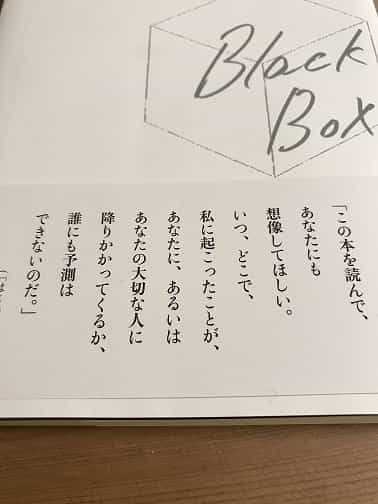 Black
Box
「この本を読んで、
あなたにも
想像してほしい。
いつ、どこで、
私に起こったことが、
あなたに、あるいは
あなたの大切な人に
降りかかってくるか、
誰にも予測は
できないのだ。」